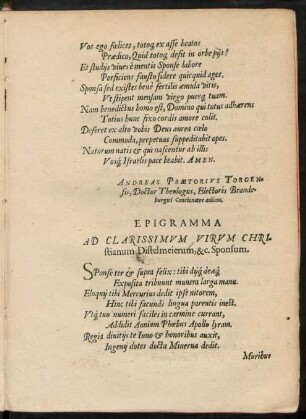 Vos ego fœlices, totoq̃ ex asse beatos
Prædico, Quid totoq̃ desit in orbe pijs?
Et studijs viuet è mentis Sponse labore
Perficiens fausto sidere quicquid ages,
Sponsa sed existes benè fertilis æmula vitis,
Vt stipent mensam virgo puerq̃ tuam.
Nam benedictus homo est, Domino qui totus adhærens
Totius hunc fixo cordis amore colit.
Deferet ex alto vobis Deus aurea cœlo
Commoda, perpetuas suppeditabit opes.
Natorum natis & qui nascentur ab illis
Vosq̃ Israëlis pace beabit. AMEN.
ANDREAS PRÆTORIVS TORGEN-
sis, Doctor Theologus, Electoris Brande-
burgici Concionator aulicus.
EPIGRAMMA
AD CLARISSIMVM VIRVM CHRI-
stianum Distelmeierum, &c. Sponsum.
SPonse ter & supra felix: tibi dijq̃ deæq̃
Exposita tribuunt munera larga manu.
Eloquij tibi Mercurius dedit ipse nitorem,
Hinc tibi facundi lingua parentis inest.
Vtq̃ tuo numeri faciles in carmine currant,
Addidit Aoniam Phœbus Apollo lyram.
Regia diuitijs te Iuno & honoribus auxit,
Ingenij dotes docta Minerua dedit.
Moribus